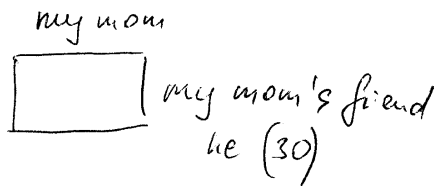 my mom
my mom's friend
he (30)